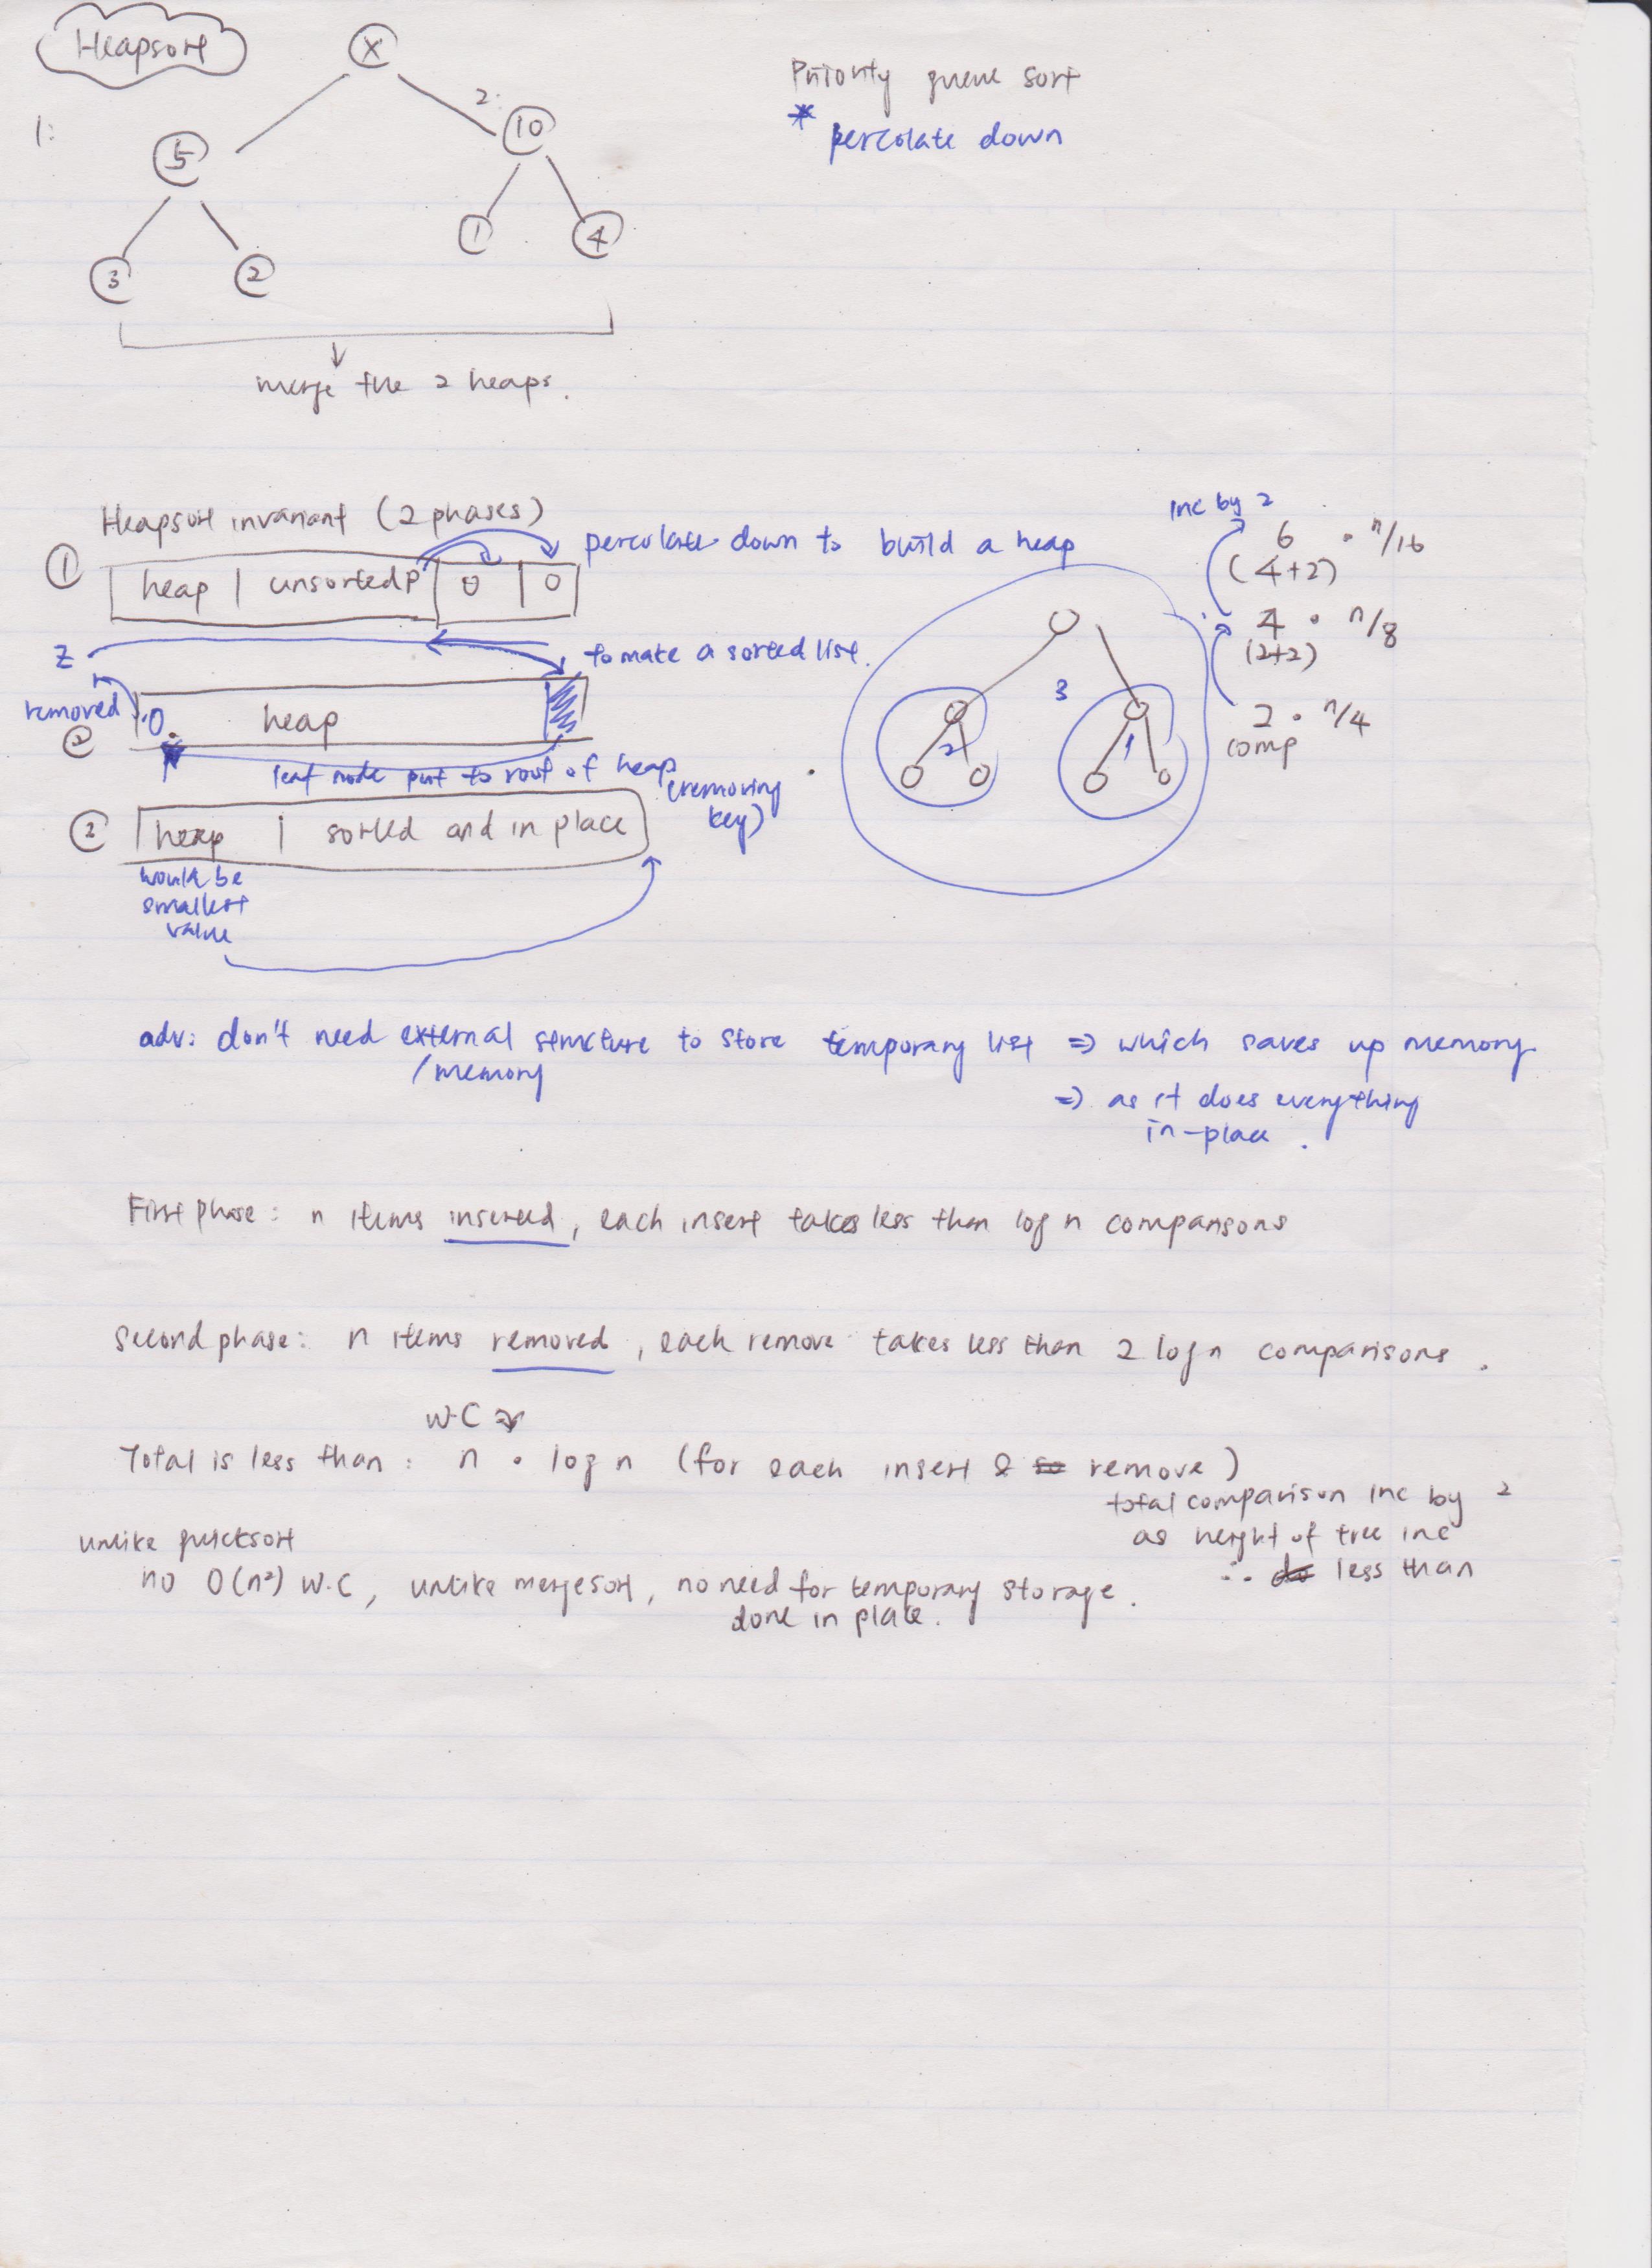 Heapsort
X
1:
2:
5
10
3
2
1
4
merge the 2 heaps.
Priority queue sort
* percolate down
Heapsort invariant (2 phases)
percolate down to build a heap
① heap | unsorted P | 0 | 0
to make a sorted list.
Z
removed
② 0. heap
leaf node put to root of heap
(removing
key)
② heap | sorted and in place
would be
smallest
value
inc by 2
6 · n/16
(4+2)
4 · n/8
(2+2)
2 · n/4
comp
3
2
1
adv: don't need external structure to store temporary list => which saves up memory
/memory
=> as it does everything
in-place.
First phase: n items inserted, each insert takes less than log n comparisons
Second phase: n items removed, each remove takes less than 2 log n comparisons.
W.C
Total is less than: n · log n (for each insert & so remove)
total comparison inc by 2
as height of tree inc
∴ do less than
unlike quicksort
no O(n²) W.C, unlike mergesort, no need for temporary storage.
done in place.